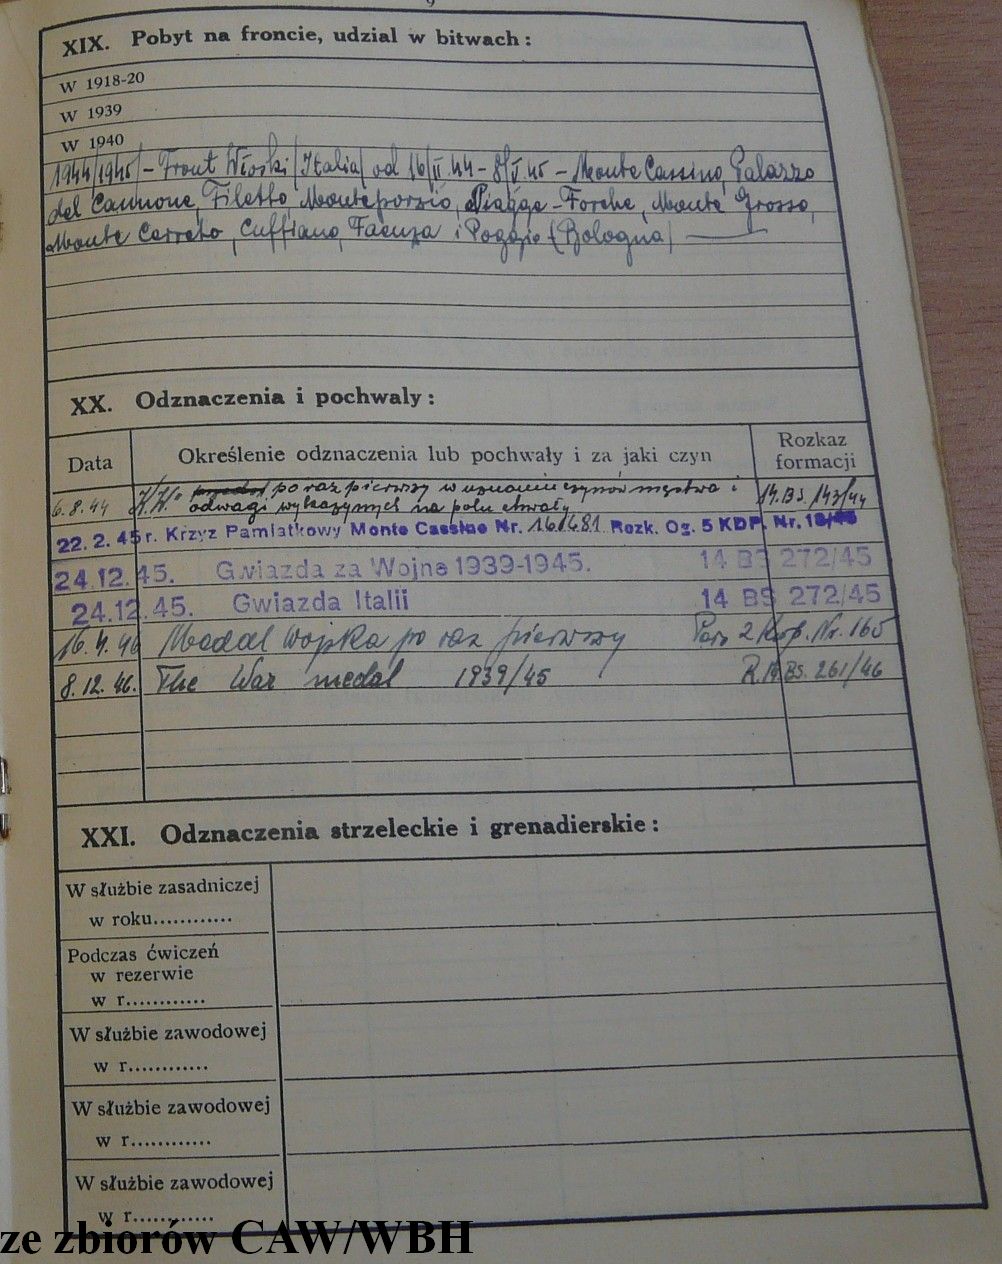 9
XIX. Pobyt na froncie, udzial w bitwach:
W 1918-20
W 1939
W 1940
1944/1945/ - Front Włoski /Italia/ od 16/II.44 - 8/V.45 - Monte Cassino, Palazzo
del Cannone, Filetto, Monteporzio, Piagge - Forche, Monte Grosso,
Monte Cerreto, Cuffiano, Faenza i Poggio (Bologna)
XX. Odznaczenia i pochwaly:
Data Określenie odznaczenia lub pochwały i za jaki czyn Rozkaz formacji
6.8.44 K.W. po raz pierwszy w uznaniu czynów męstwa i 14.BS. 143/44
odwagi wykazanych na polu chwały
22.2.45r. Krzyz Pamiatkowy Monte Cassino Nr. Rozk. Og. 5 KDP. Nr.
24.12.45. Gwiazda za Wojne 1939-1945. 14 BS 272/45
24.12.45. Gwiazda Italii 14 BS 272/45
16.4.46 Medal Wojska po raz pierwszy 2 Korp. Nr. 165
8.12.46. The War medal 1939/45 R.14.BS. 261/46
XXI. Odznaczenia strzeleckie i grenadierskie:
W służbie zasadniczej
w roku............
Podczas ćwiczeń
w rezerwie
w r............
W służbie zawodowej
w r............
W służbie zawodowej
w r............
W służbie zawodowej
w r............
ze zbiorów CAW/WBH